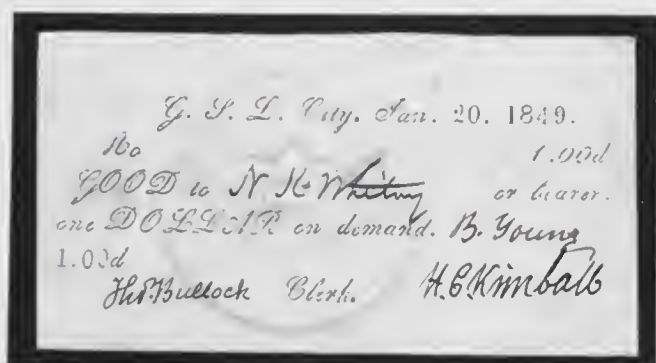 G. S. L. City. Jan. 20. 1849.
No 1.00d
GOOD to N K Whitney or bearer.
one DOLLAR on demand. B. Young
1.00d
Thos. Bullock Clerk. H. C Kimball